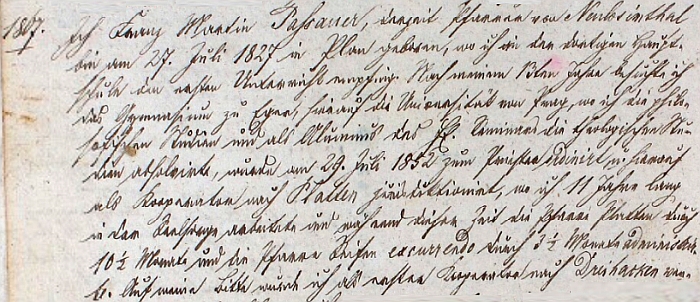 1867. Ich Franz Martin Passauer, derzeit Pfarrer von Neulosimthal
bin am 27. Juli 1827 in Plan geboren, wo ich an der dortigen Haupt-
schule den ersten Unterricht empfing. Nach meinem 13ten Jahre besuchte ich
das Gymnasium zu Eger, hierauf die Universität von Prag, wo ich die philo-
sofischen Studien und als Alumnus des Seminars die theologischen Stu-
dien absolvirte, wurde am 29. Juli 1852 zum Priester ordinirt, u. hierauf
als Kooperator nach Platten jurisdiktionirt, wo ich 11 Jahre lang
in der Seelsorge arbeitete und während dieser Zeit die Pfarre Platten durch
10 ½ Monate und die Pfarre Seifen excurrendo durch 3 ½ Monate administrir-
te. Auf meine Bitte wurde ich als erster Kooperator nach Dreihacken ver-